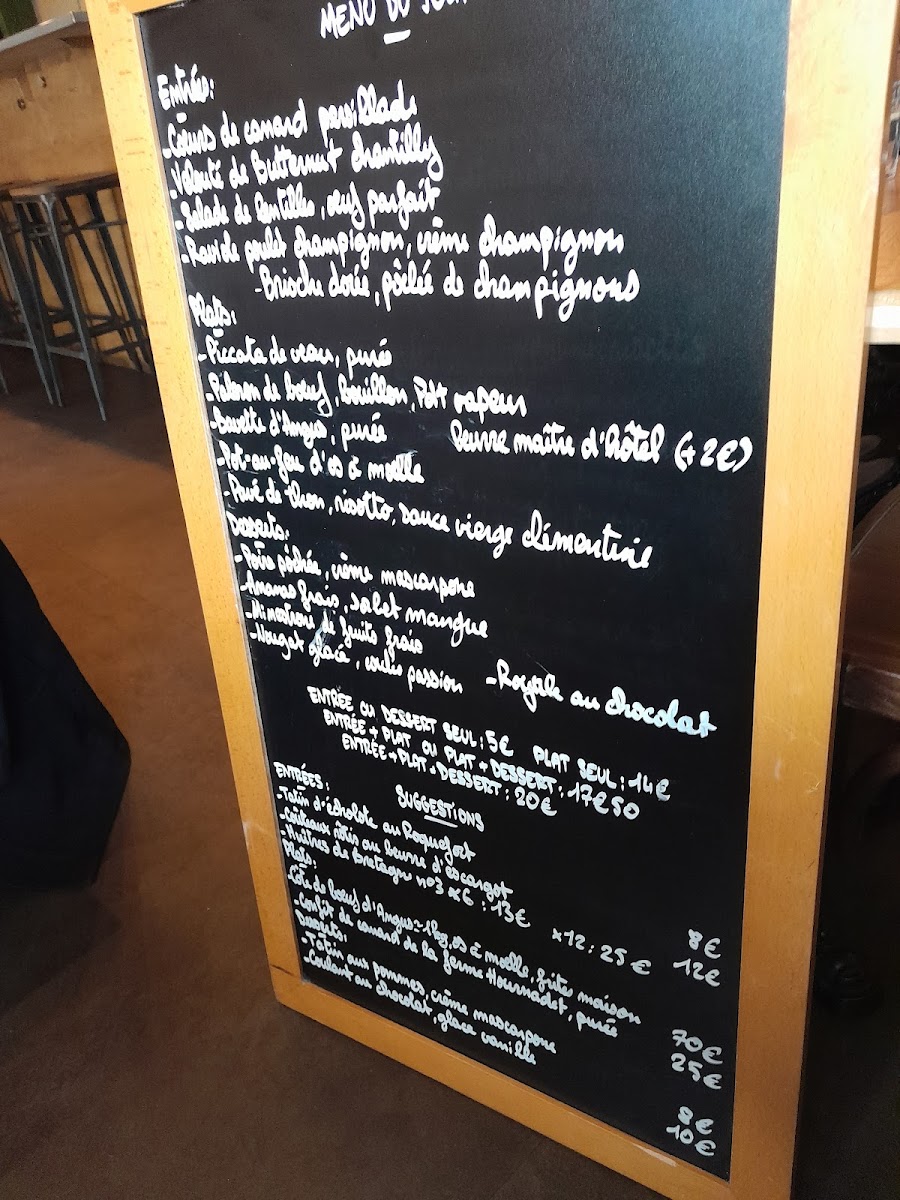 MENU DU JOUR
Entrées:
-Coeurs de canard persillade
-Velouté de Butternut chantilly
-Salade de lentilles, oeuf parfait
-Ravi de poulet champignon, crème champignon
-Brioche dorée, pôêlée de champignons
Plats:
-Piccata de veau, purée
-Paleron de boeuf, bouillon, Pdt vapeur
-Bavette d'Angus, purée beurre maître d'hôtel (+2€)
-Pot-au-feu d'os à moelle
-Pavé de thon, risotto, sauce vierge clémentine
Desserts:
-Poire pôchée, crème mascarpone
-Ananas frais, sorbet mangue
-Minestrone de fruits frais
-Nougat glacé, coulis passion -Royale au chocolat
ENTRÉE OU DESSERT SEUL: 5€ PLAT SEUL: 14€
ENTRÉE + PLAT OU PLAT + DESSERT: 17€50
ENTRÉE + PLAT + DESSERT: 20€
SUGGESTIONS
ENTRÉES:
-Tatin d'échalote au Roquefort 8€
-Couteaux rôtis au beurre d'escargot 12€
-Huîtres de Bretagne n°3 x6: 13€ x12: 25€
Plats:
-Côte de boeuf d'Angus ~1kg, os à moelle, frites maison 70€
-Confit de canard de la ferme Hournadet, purée 25€
Desserts:
-Tatin aux pommes, crème mascarpone 8€
-Coulant au chocolat, glace vanille 10€